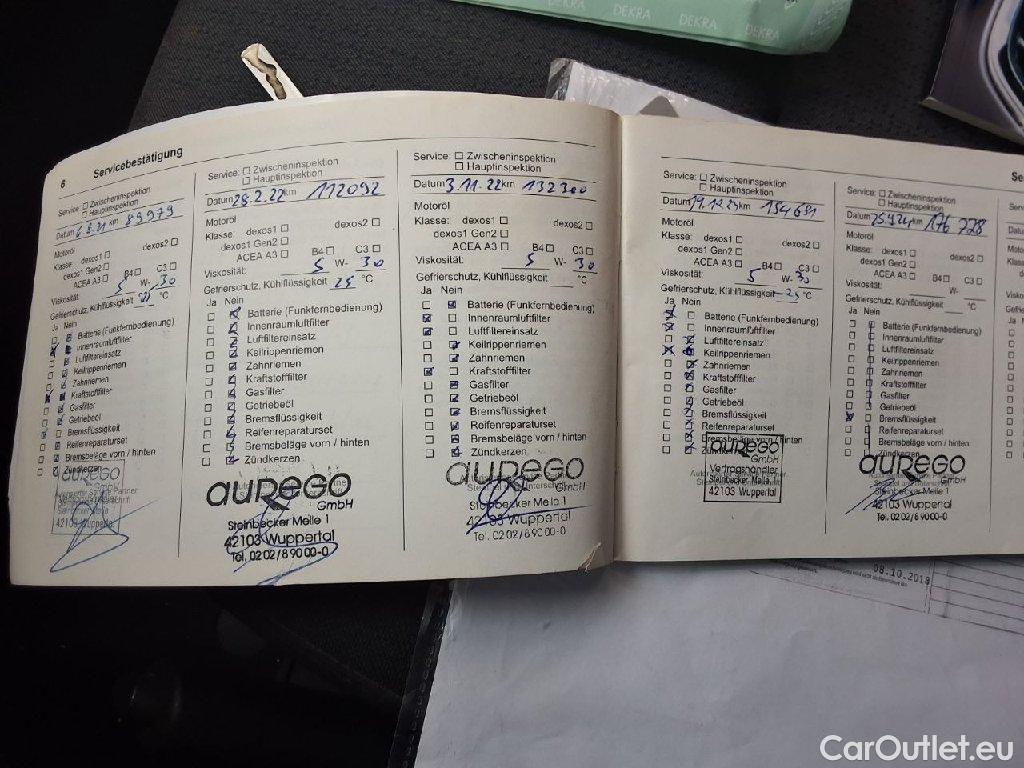 DEKRA DEKRA DEKRA DEKRA
6 Servicebestätigung
Service: Zwischeninspektion
Hauptinspektion
Datum 6.8.21 km 89979
Motoröl
Klasse: dexos1 dexos2
dexos1 Gen2
ACEA A3 B4 C3
Viskosität: 5 W- 30
Gefrierschutz, Kühlflüssigkeit °C
Ja Nein
Batterie (Funkfernbedienung)
Innenraumluftfilter
Luftfiltereinsatz
Keilrippenriemen
Zahnriemen
Kraftstofffilter
Gasfilter
Getriebeöl
Bremsflüssigkeit
Reifenreparaturset
Bremsbeläge vorn / hinten
Zündkerzen
aUREGO
GmbH
42103 Wuppertal
Service: Zwischeninspektion
Hauptinspektion
Datum 28.2.22 km 112092
Motoröl
Klasse: dexos1 dexos2
dexos1 Gen2
ACEA A3 B4 C3
Viskosität: 5 W- 30
Gefrierschutz, Kühlflüssigkeit 25 °C
Ja Nein
Batterie (Funkfernbedienung)
Innenraumluftfilter
Luftfiltereinsatz
Keilrippenriemen
Zahnriemen
Kraftstofffilter
Gasfilter
Getriebeöl
Bremsflüssigkeit
Reifenreparaturset
Bremsbeläge vorn / hinten
Zündkerzen
aUREGO
GmbH
Steinbecker Meile 1
42103 Wuppertal
Tel. 02 02 / 8 90 00-0
Service: Zwischeninspektion
Hauptinspektion
Datum 3.11.22 km 132300
Motoröl
Klasse: dexos1 dexos2
dexos1 Gen2
ACEA A3 B4 C3
Viskosität: 5 W- 30
Gefrierschutz, Kühlflüssigkeit °C
Ja Nein
Batterie (Funkfernbedienung)
Innenraumluftfilter
Luftfiltereinsatz
Keilrippenriemen
Zahnriemen
Kraftstofffilter
Gasfilter
Getriebeöl
Bremsflüssigkeit
Reifenreparaturset
Bremsbeläge vorn / hinten
Zündkerzen
aUREGO
GmbH
Steinbecker Meile 1
42103 Wuppertal
Tel. 02 02 / 8 90 00-0
Se
Service: Zwischeninspektion
Hauptinspektion
Datum 19.12.23 km 154681
Motoröl
Klasse: dexos1 dexos2
dexos1 Gen2
ACEA A3 B4 C3
Viskosität: 5 W- 30
Gefrierschutz, Kühlflüssigkeit -25 °C
Ja Nein
Batterie (Funkfernbedienung)
Innenraumluftfilter
Luftfiltereinsatz
Keilrippenriemen
Zahnriemen
Kraftstofffilter
Gasfilter
Getriebeöl
Bremsflüssigkeit
Reifenreparaturset
Bremsbeläge vorn / hinten
Zündkerzen
aUREGO
GmbH
Vertragshändler
Steinbecker Meile 1
42103 Wuppertal
Service: Zwischeninspektion
Hauptinspektion
Datum 25.9.24 km 176 728
Motoröl
Klasse: dexos1 dexos2
dexos1 Gen2
ACEA A3 B4 C3
Viskosität: W-
Gefrierschutz, Kühlflüssigkeit °C
Ja Nein
Batterie (Funkfernbedienung)
Innenraumluftfilter
Luftfiltereinsatz
Keilrippenriemen
Zahnriemen
Kraftstofffilter
Gasfilter
Getriebeöl
Bremsflüssigkeit
Reifenreparaturset
Bremsbeläge vorn / hinten
Zündkerzen
aUREGO
GmbH
Steinbecker Meile 1
42103 Wuppertal
Tel. 02 02 / 8 90 00-0
08.10.2018
CarOutlet.eu